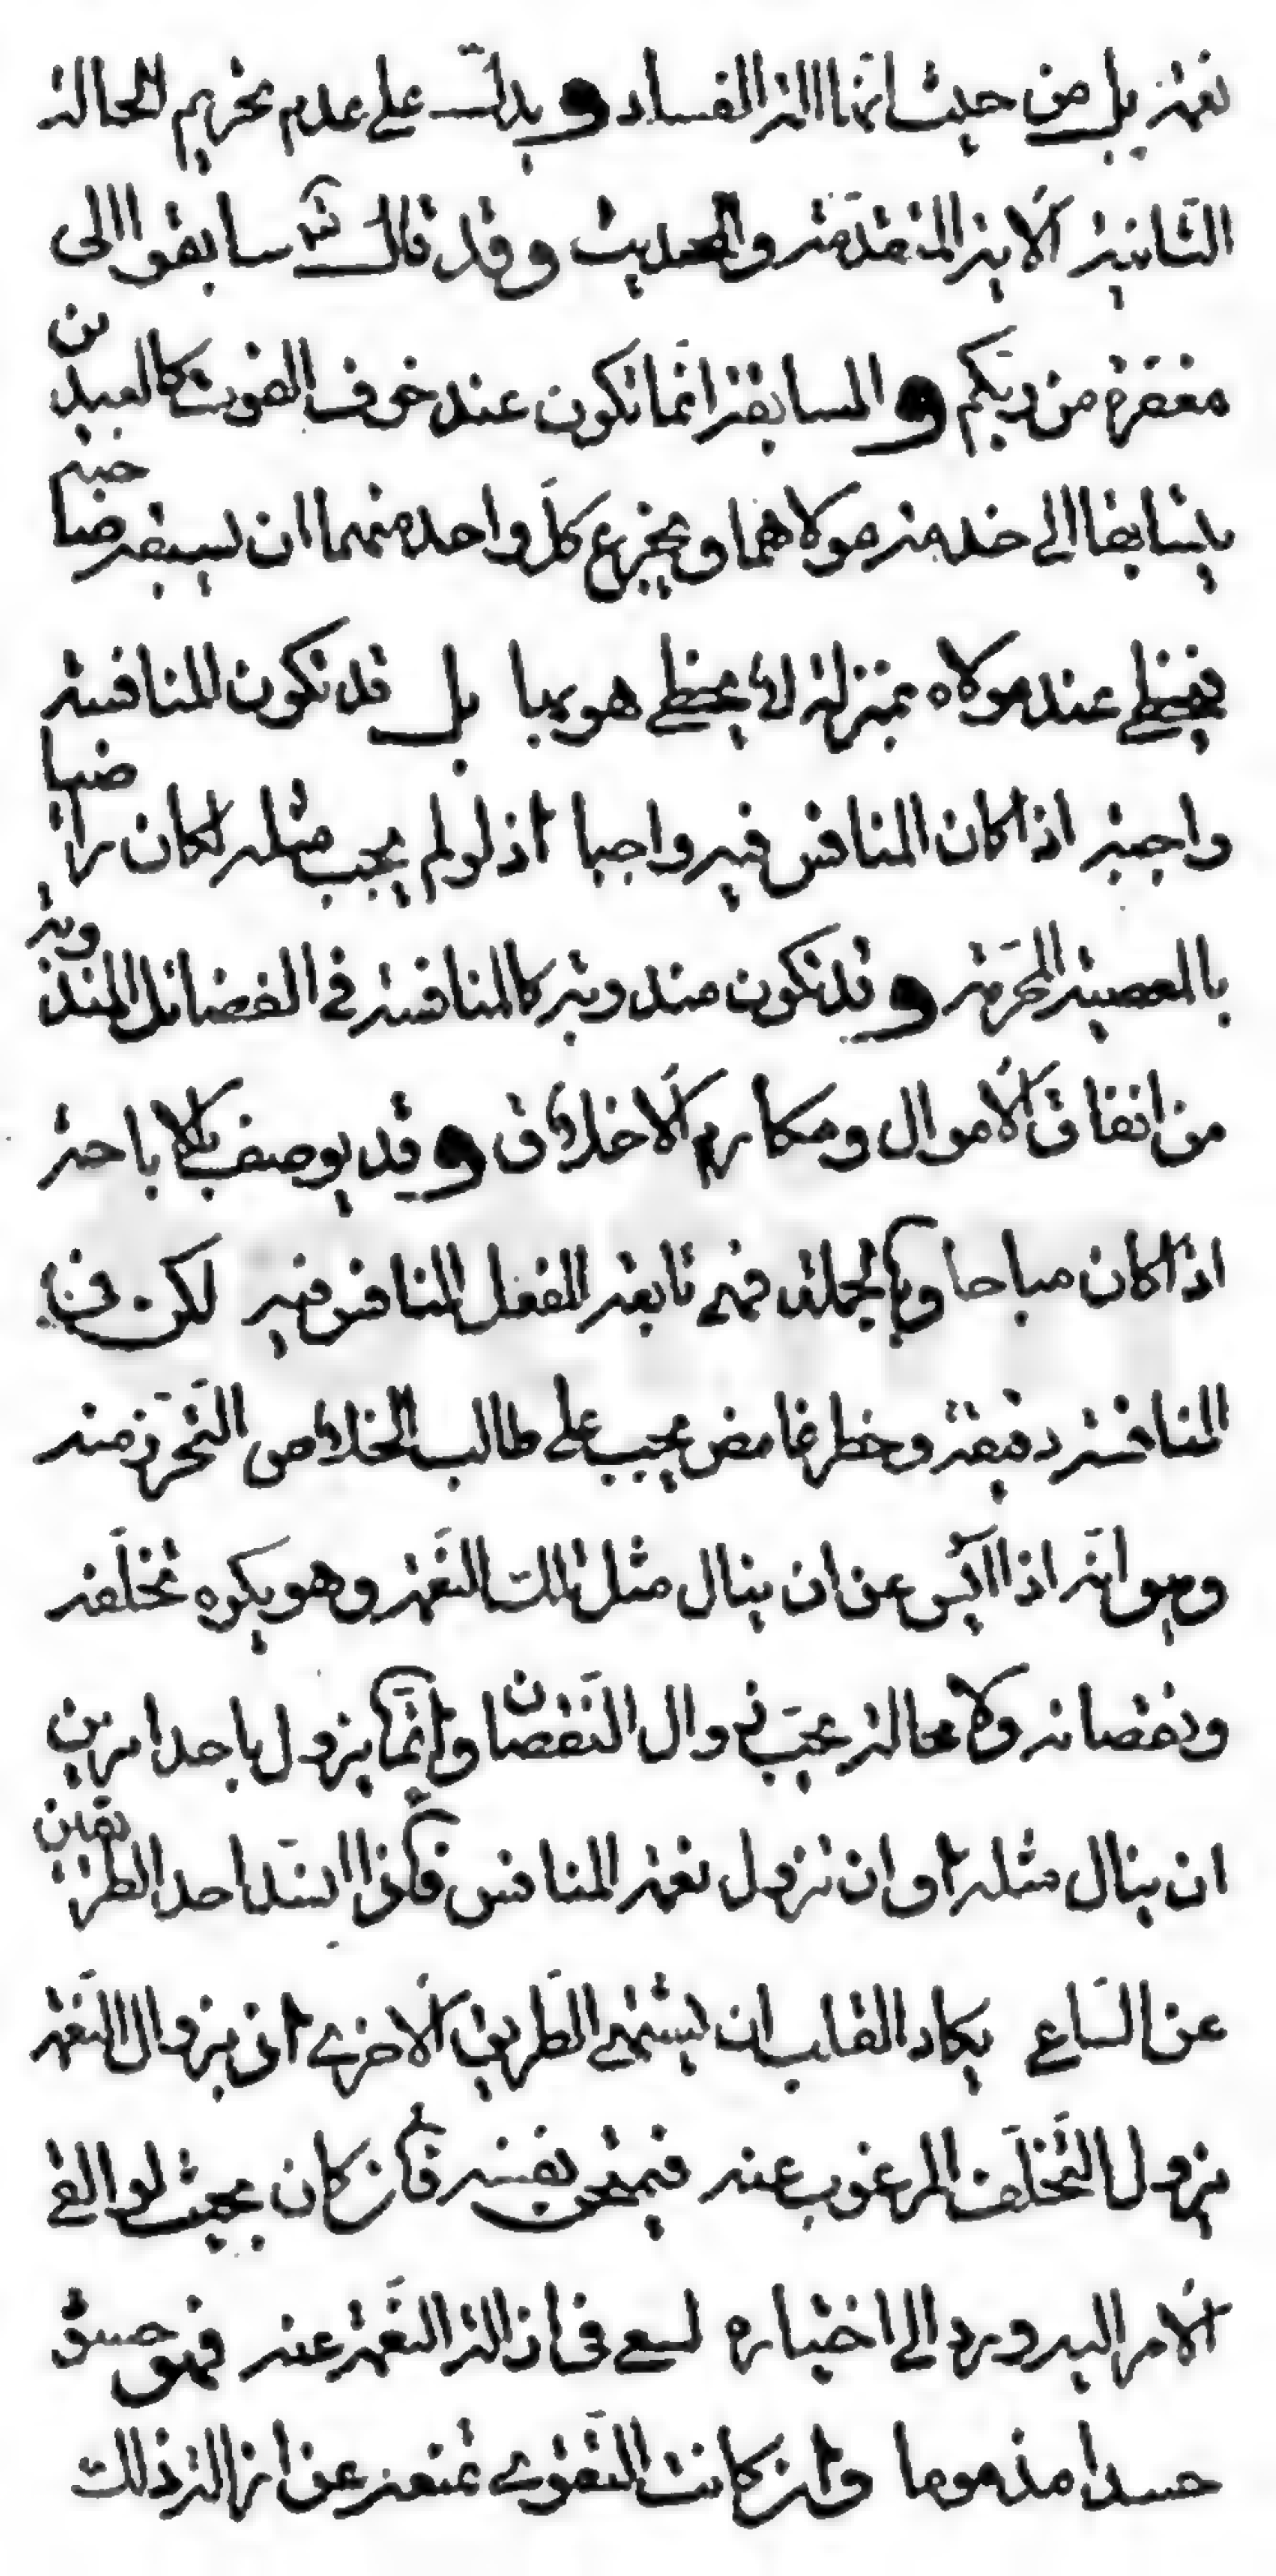 نعمة بل من حيث انها آلة الفساد و يدلّ على عدم تحريم الحالة
الثانية الآية المتقدمة والحديث وقد قال تعالى سابقوا الى
مغفرة من ربكم و المسابقة انما تكون عند خوف الفوت كالعبدين
يتسابقا الى خدمة مولاهما ويجزع كلّ واحد منهما ان يسبقه صاحبه
فيحظى عند مولاه بمنزلة لا يحظى هو بها بل قد تكون المنافسة
واجبة اذا كان المنافس فيه واجبا اذ لو لم يجب مثله لكان راضيا
بالمعصية المحرّمة و قد تكون مندوبة كالمنافسة في الفضائل المندوبة
من انفاق الأموال ومكارم الأخلاق و قد يوصف بالاباحة
اذا كان مباحا وبالجملة فهي تابعة للفعل المنافس فيه لكن في
المنافسة دقيقة وخطر غامض يجب على طالب الخلاص التحرّز منه
وهو انّه اذا آيس عن ان ينال مثل تلك النعمة وهو يكره تخلّفه
ونقصانه ولا محالة يحبّ زوال النقصان وانّما يزول باحد امرين
ان ينال مثله او ان تزول نعمة المنافس فاذا انسدّ احد الطريقين
عن الساعي يكاد القلب ان يشتهي الطريق الأخرى اذ بزوال النعمة
يزول التخلّف المرغوب عنه فيمتحن نفسه فان كان بحيث لو القي
الأمر اليه وردّ الى اختياره لسعى في ازالة النعمة عنه فهو حسود
حسدا مذموما وان كانت التقوى تمنعه عن ازالة ذلك